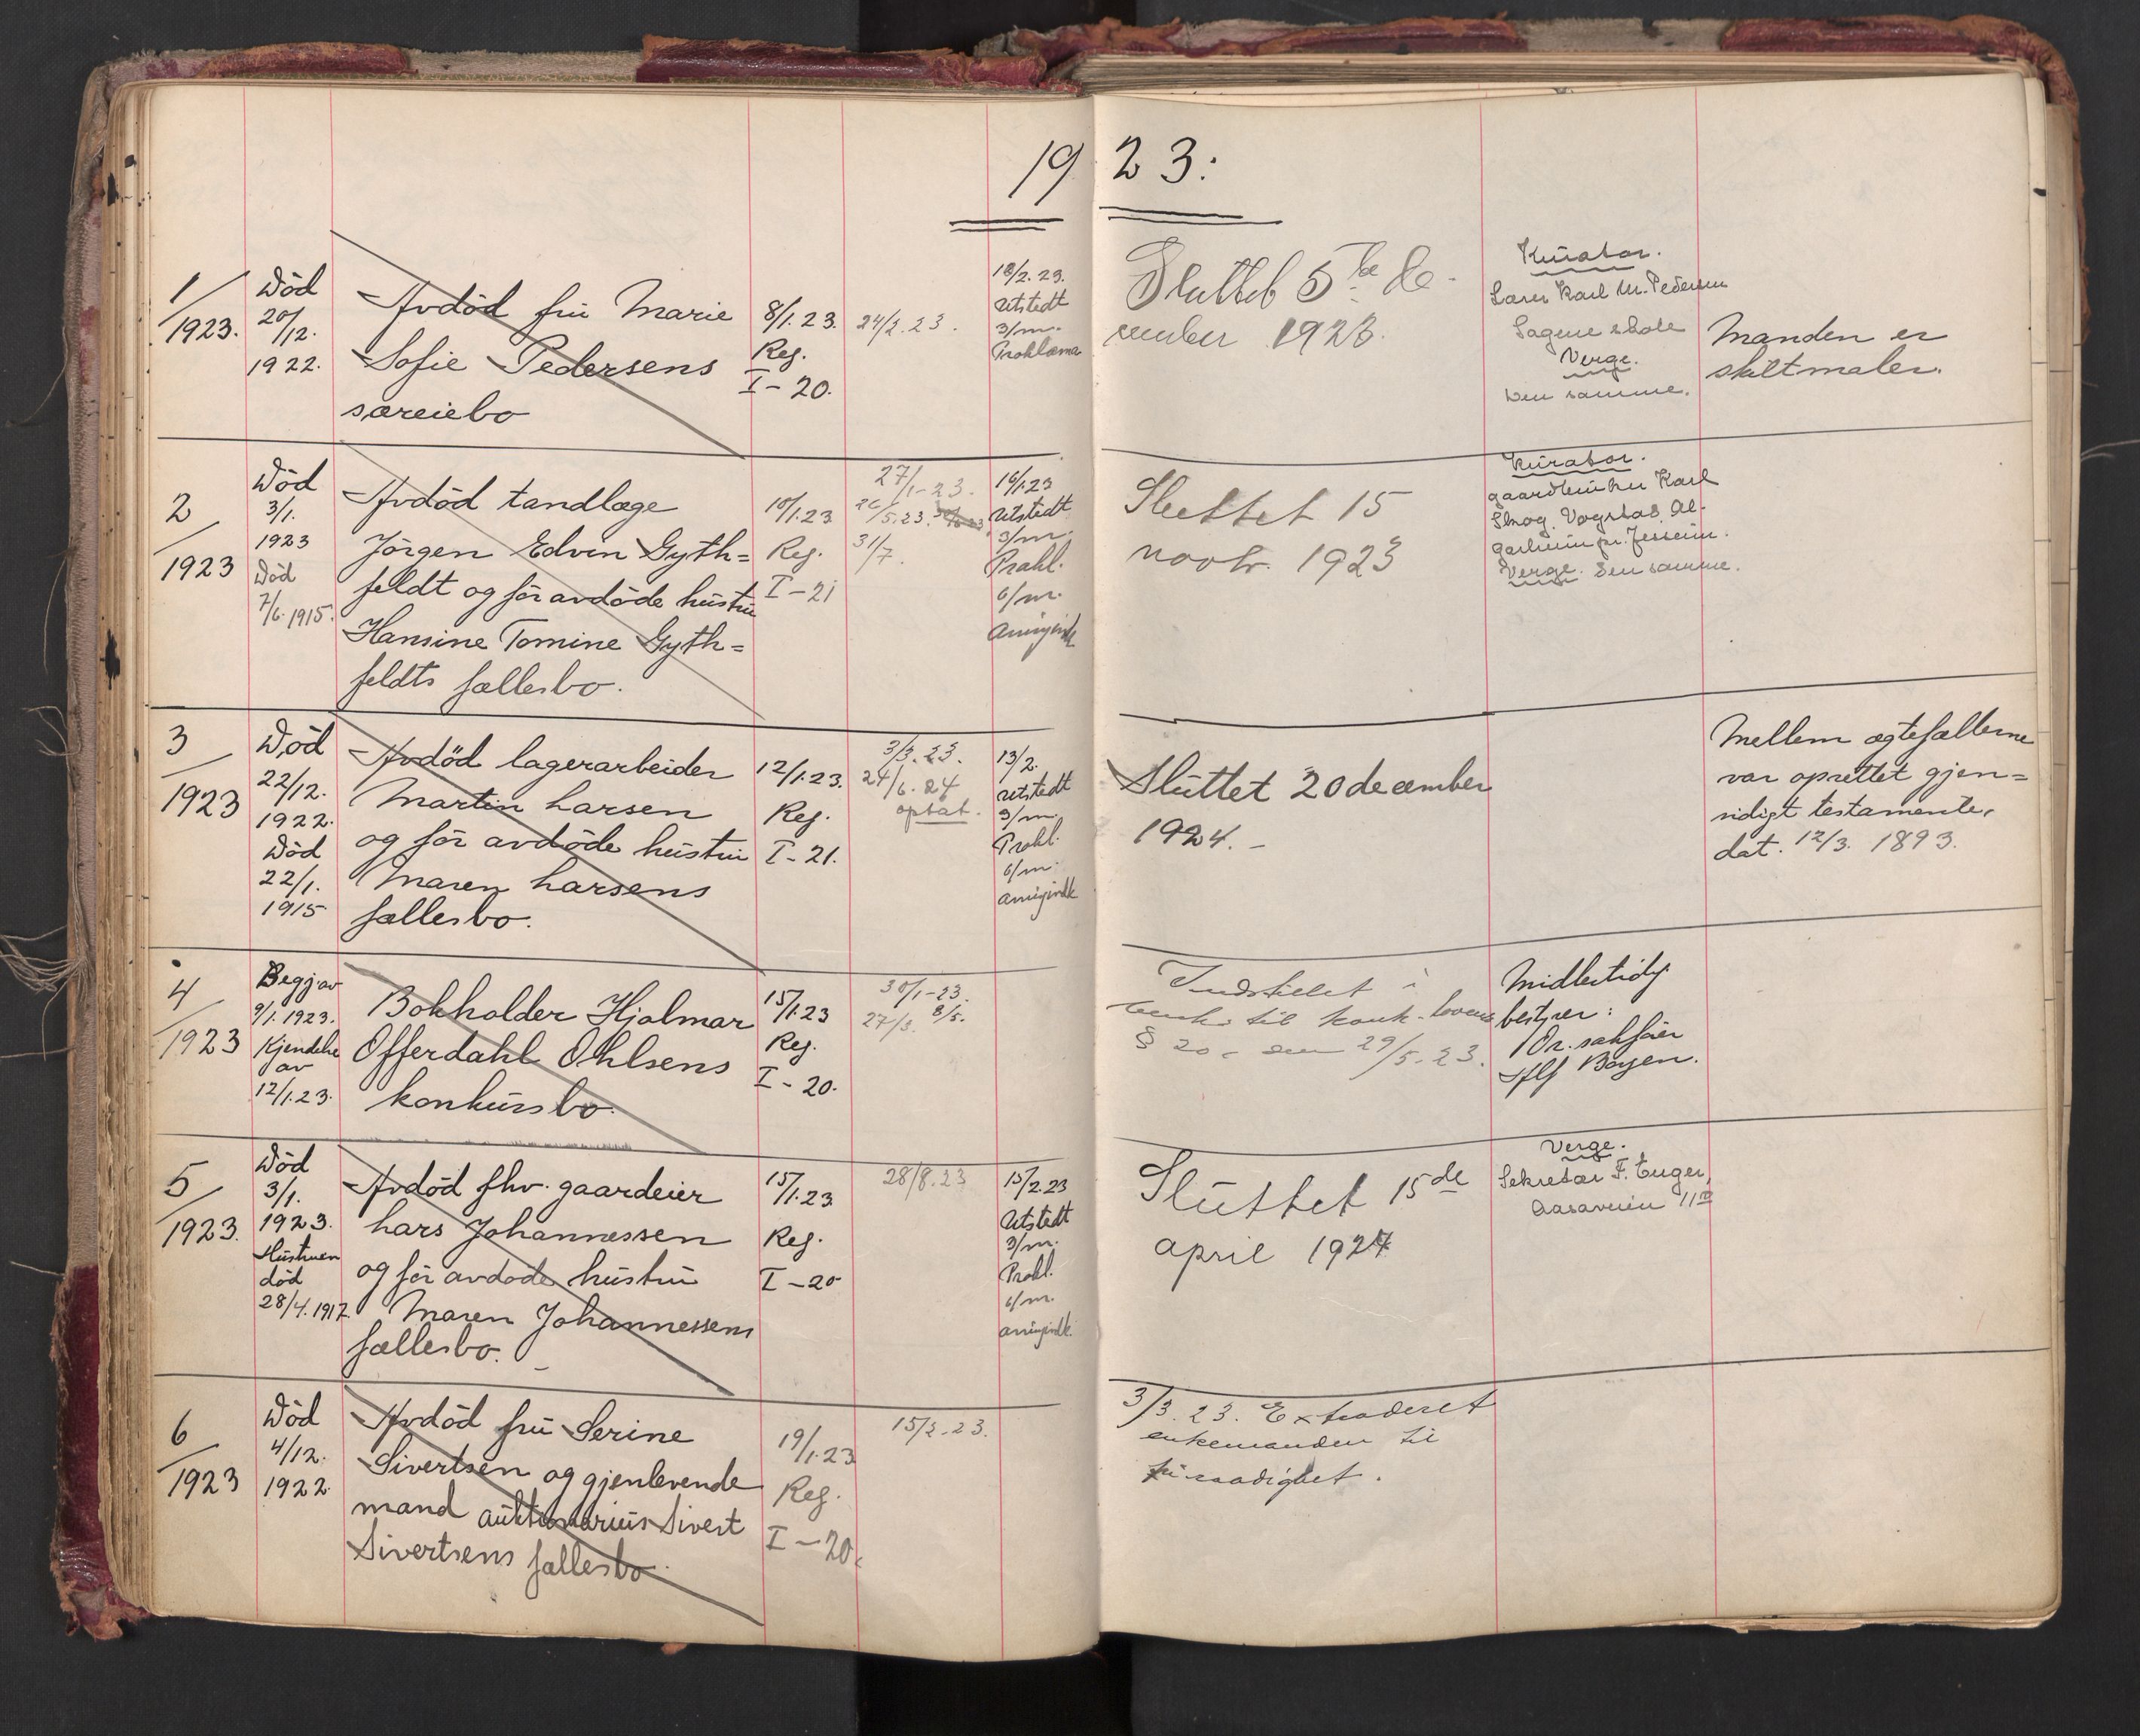 1923:
1/1923.
Død
20/12.
1922.
Avdød frú Marie
Sofie Pedersens
særeiebo
8/1.23.
Reg.
I-20.
24/2.23.
18/2.23.
Utstedt
3/m.
Proklama
Sluttet 5te de-
cember 1923.
Kúrator.
Lærer Karl M. Pedersen
Sagene skole
Verge.
Den samme.
Manden er
skiltmaler.
2/1923
Død
3/1.
1923
Død
7/6.1915.
Avdød tandlæge
Jörgen Edvin Gyth=
feldt og før avdøde hústrú
Hansine Tomine Gyth=
feldts fællesbo.
10/1.23
Reg.
I-21
27/1-23.
26/5.23.
31/7.
16/1.23
Utstedt
3/m.
Prokl.
6/m.
Sluttet 15
novbr. 1923
Kúrator.
gaardbrúker Karl
Skog, Vogstad, Al-
garheim pr. Jesseim.
Verge. Den samme.
3/1923
Død
22/12.
1922.
Død
22/1.
1915
Avdød lagerarbeider
Martin Larsen
og før avdøde hústrú
Maren Larsens
fællesbo.
12/1.23.
Reg.
I-21.
3/3.23.
24/6.24
optat.
13/2.
Utstedt
3/m.
Prokl.
6/m.
Slúttet 20 december
1924.-
Mellem ægtefællerne
var oprettet gjen=
sidigt testamente,
dat. 12/3. 1893.
4/1923
Begj. av
9/1.1923.
Kjendelse
av
12/1.23.
Bokholder Hjalmar
Offerdahl Ohlsens
konkúrsbo.
15/1.23
Reg.
I-20.
30/1-23.
27/3. 8/5.
Indstillet i
henh. til konk. lovens
§ 20 den 29/5.23.
Midlertidig
bestyrer:
Or. sakfører
Alf Boyen.
5/1923.
Død
3/1.
1923.
Hústruen
død
28/4.1917
Avdød fhv. gaardeier
Lars Johannessen
og før avdøde hústrú
Maren Johannessens
fællesbo.
15/1.23
Reg.
I-20
28/8.23
15/2.23
Utstedt
3/m.
Prokl.
6/m.
Slúttet 15de
april 1924
Verge.
Sekretær F. Enger,
Aasaveien 11 II
6/1923
Død
4/12.
1922.
Avdød frú Serine
Sivertsen og gjenlevende
mand aúktionariús Sivert
Sivertsens fællesbo.
19/1.23
Reg.
I-20.
15/2.23.
3/3.23. Extraderet
enkemanden til
fri raadighet.